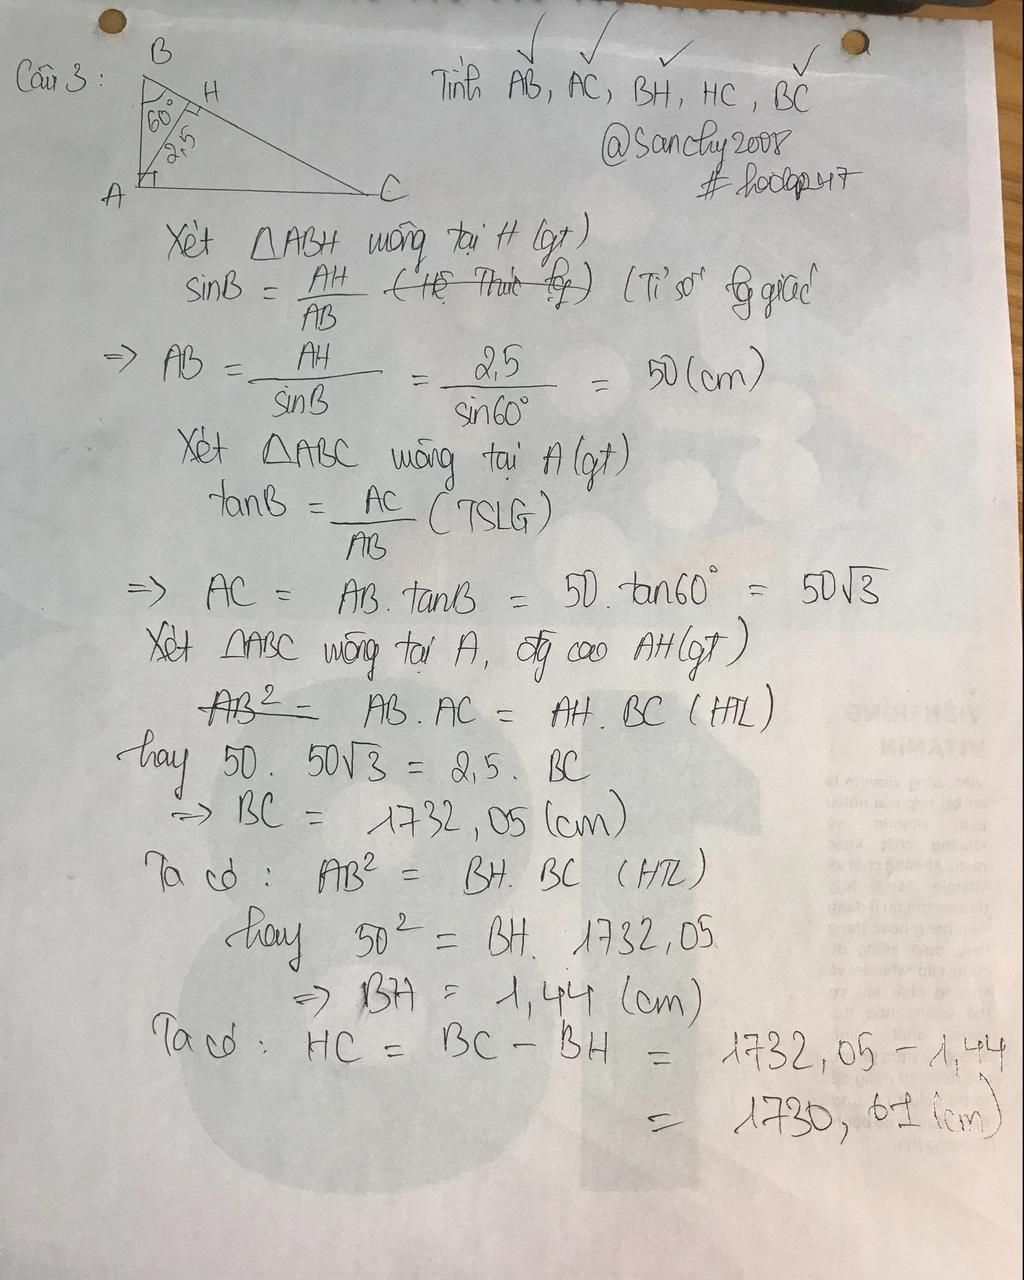 Câu 3:
B
H
60°
2,5
A
C
Tính AB, AC, BH, HC, BC
@Sanchy2008
#hoctap247
Xét △ABH vuông tại H (gt)
sinB = AH/AB (Hệ Thức lg) (Tỉ số lg giác
=> AB = AH/sinB = 2,5/sin60° = 50(cm)
Xét △ABC vuông tại A (gt)
tanB = AC/AB (TSLG)
=> AC = AB. tanB = 50. tan60° = 50√3
Xét △ABC vuông tại A, đg cao AH(gt)
AB² = AB. AC = AH. BC (HTL)
hay 50. 50√3 = 2,5. BC
=> BC = 1732,05 (cm)
Ta có: AB² = BH. BC (HTL)
hay 50² = BH. 1732,05
=> BH = 1,44 (cm)
Ta có: HC = BC - BH = 1732,05 - 1,44
= 1730,61 (cm)